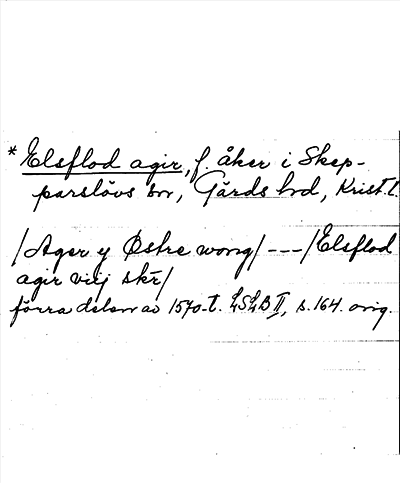 *Elsflod agir, f. åker i Skep-
parslövs sn, Gärds hd, Krist. l.
/Ager y Østre wong/ --- /Elsflod
agir viij skr/
förra delen av 1570-t. LSLB II, s. 164. orig.